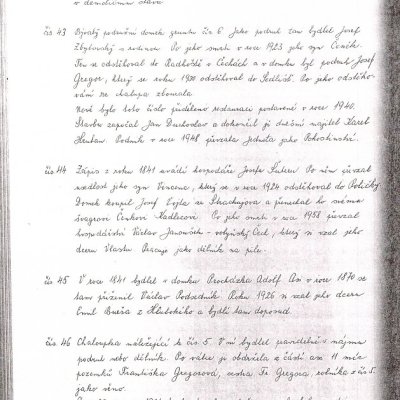 v demoličním stavu.
čís 43 Bývalý podružní domek gruntu čís 6. Jako podruh tam bydlel Josef
Zbytovský s rodinou. Po jeho smrti v roce 1923 jeho syn Ceněk.
Ten se odstěhoval do Radhoště v Čechách a v domku byl podruh Josef
Gregor, který se roku 1930 odstěhoval do Sedlišť. Po jeho odstěho-
vání se chalupa zbourala.
Nově bylo toto číslo přiděleno restauraci postavené v roce 1940.
Stavbu započal Jan Duchoslav a dokončil ji dnešní majitel Karel
Podnik v roce 1948 převzala Jednota jako Pohostinství.
čís 44 Zápis z roku 1841 uvádí hospodáře Josefa Po něm převzal
usedlost jeho syn Vincenc, který se v roce 1924 odstěhoval do Poličky.
Domek koupil Josef Lojla ze Strachujova a přenechal ho svému
švagrovi Čenkovi Kadlecovi. Po jeho smrti v roce 1958 převzal
hospodářství Václav Janoušek - volyňský Čech, který si vzal jeho
dceru Vlastu. Pracuje jako dělník na pile.
čís 45 V roce 1841 bydlel v domku Procházka Adolf. Asi v roce 1870 se
tam přiženil Václav Podsedník. Roku 1926 si vzal jeho dceru
Emil Bureša z Hlubokého a bydlí tam doposud.
čís 46 Chaloupka náležející k čís 5. V ní bydlel pravidelně v nájmu
podruh nebo dělník. Po válce ji obdržela z části asi 11 mír
pozemků Františka Gregorová, sestra Fr. Gregora, rolníka z čís 5.
jako věno.